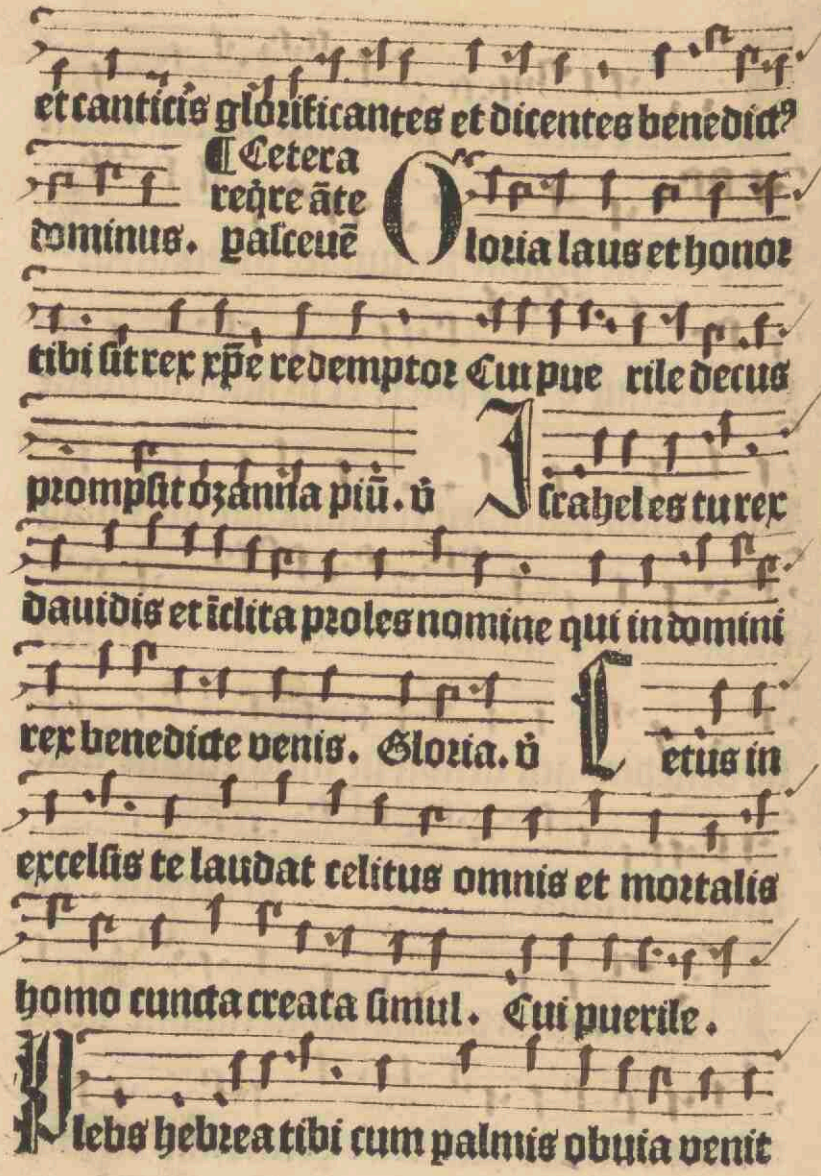 et canticis glorificantes et dicentes benedictꝰ
¶ Cetera
reqͥre āte
dominus. pasceuē Gloria laus et honor
tibi sit rex xp̄e redemptor Cui pue rile decus
prompsit ozanna piū. v̉ Iscrahel es tu rex
dauidis et īclita proles nomine qui in domini
rex benedicte venis. Gloria. v̉ Cetus in
excelsis te laudat celitus omnis et mortalis
homo cuncta creata simul. Cui puerile.
Plebs hebrea tibi cum palmis obuia venit